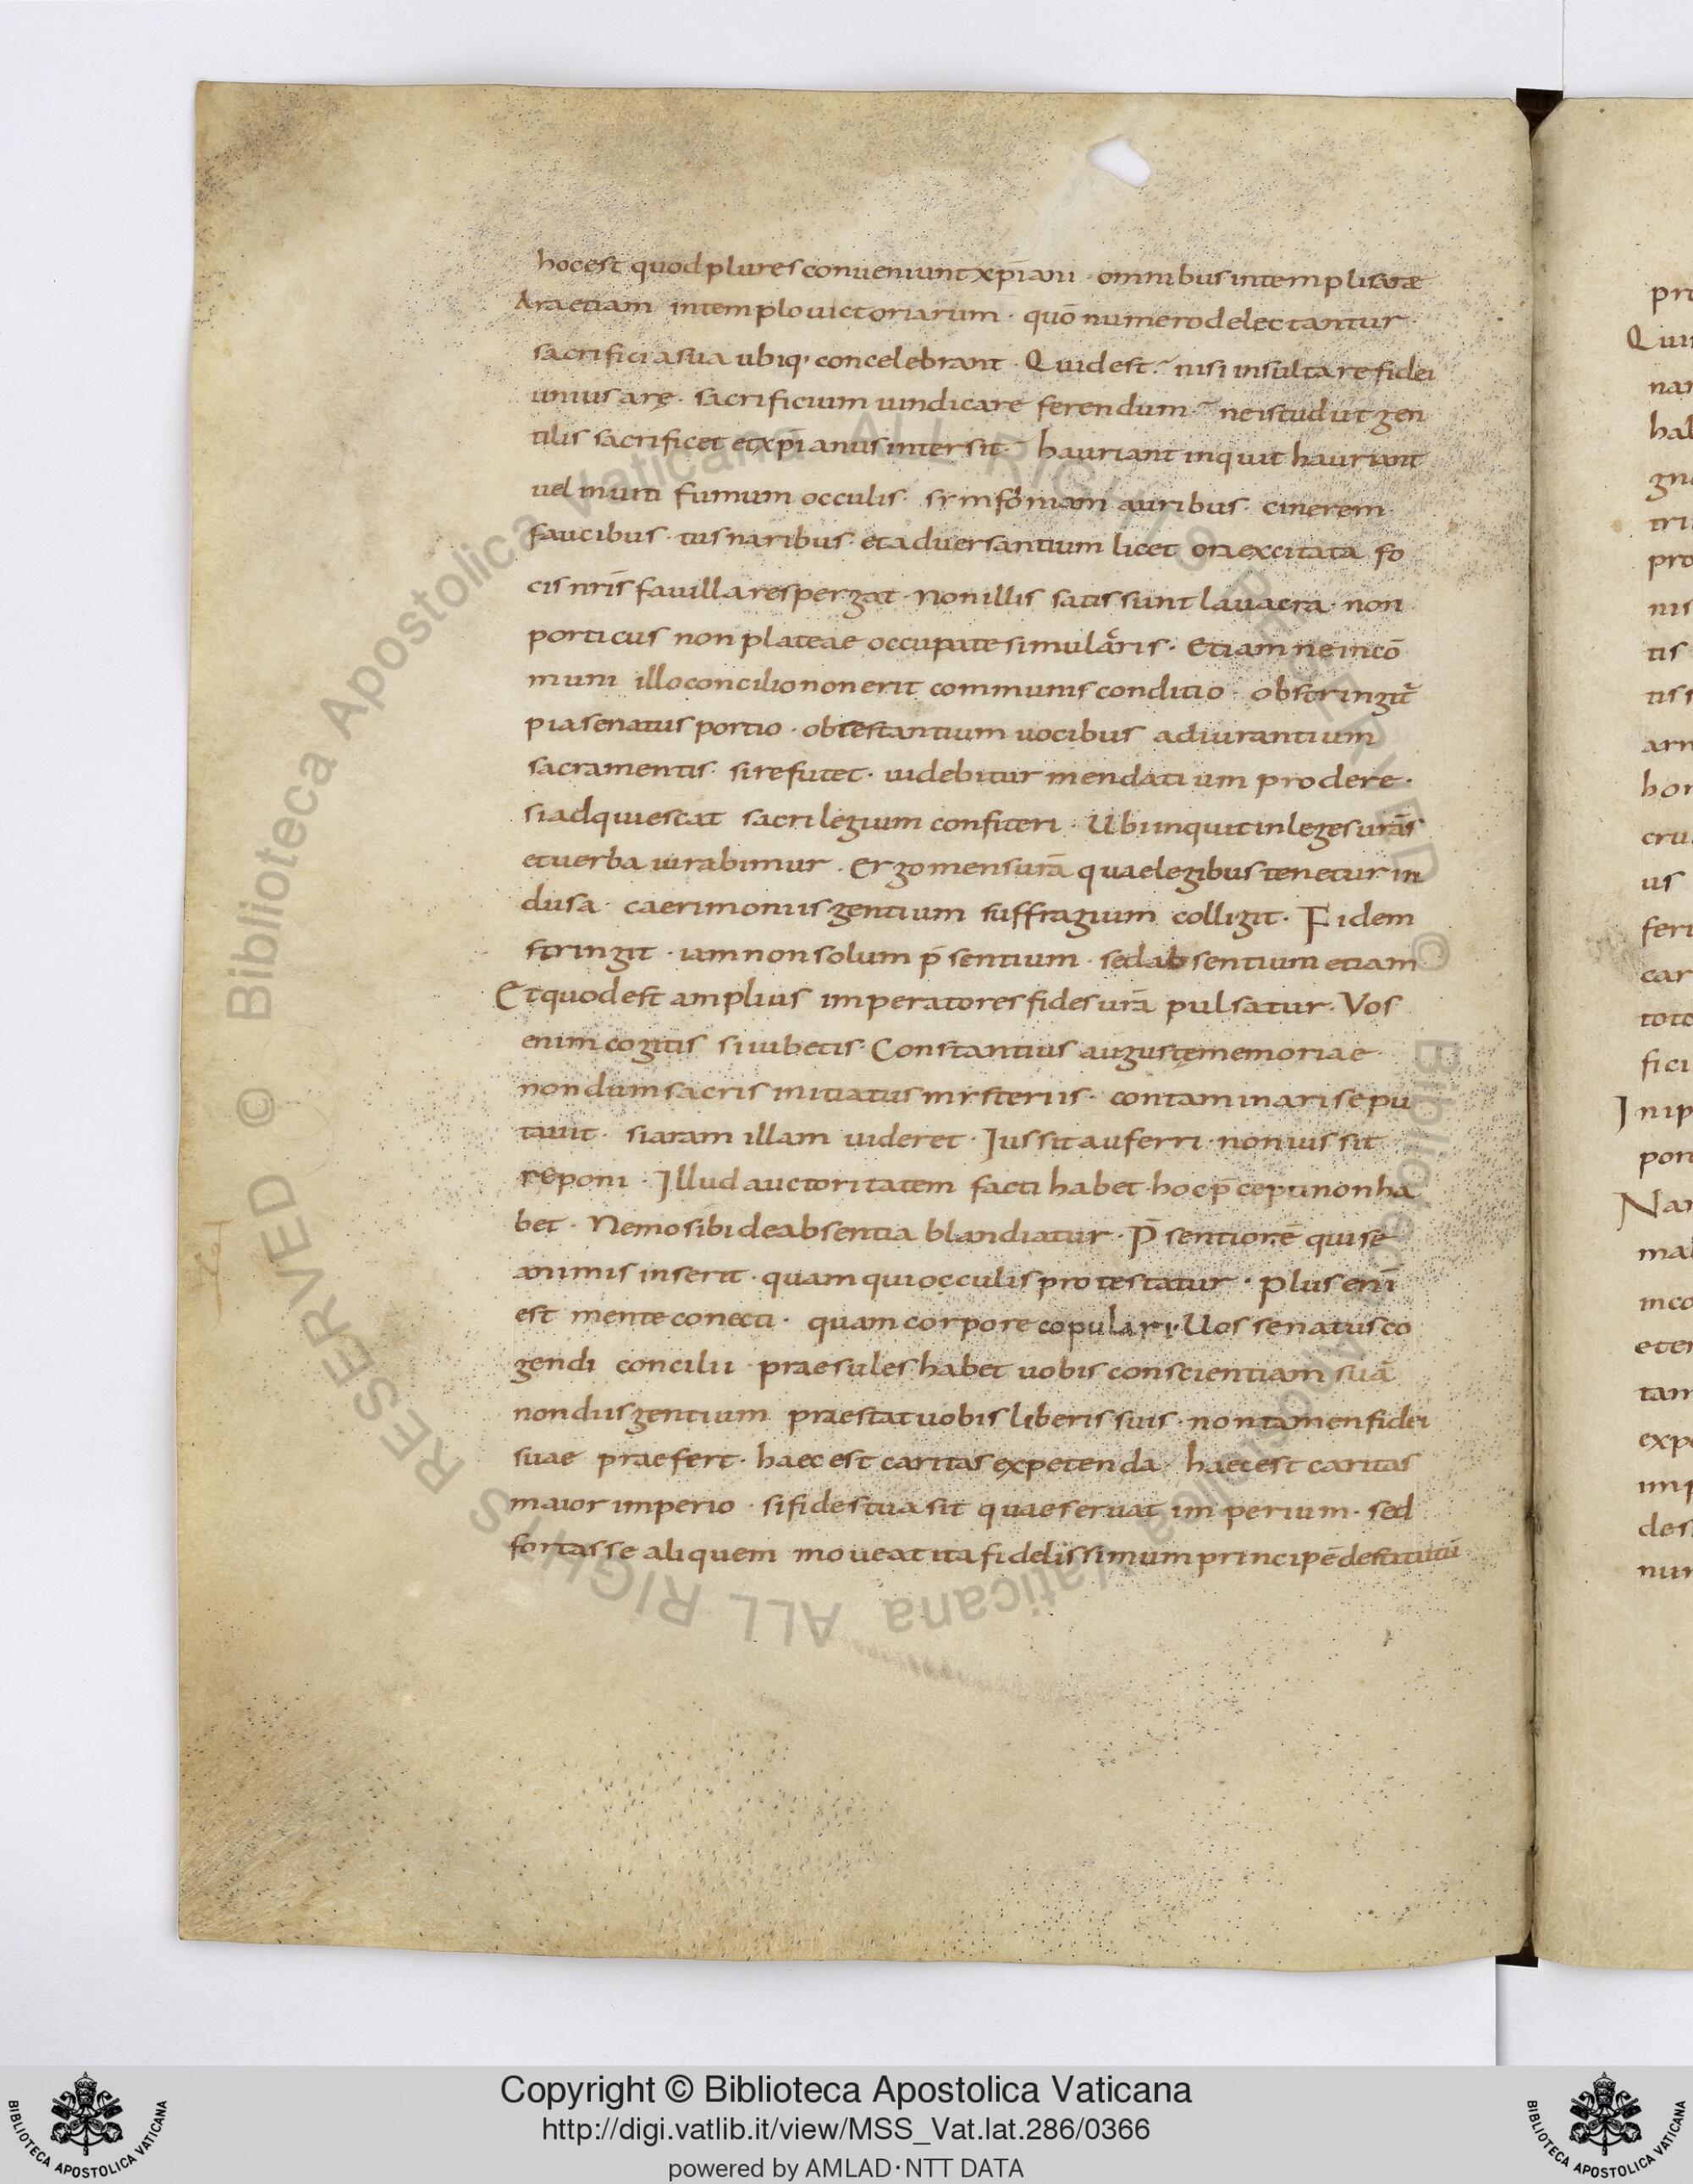 hoc est quod plures conueniunt xp̄iani · omnibus in templis arae
Ara etiam in templo uictoriarum · quō numero delectantur ·
sacrificia sua ubiq; concelebrant · Quid est? nisi insultare fidei
unius arę · sacrificium uindicare ferendum? ne istud ut gen
tilis sacrificet et xp̄ianus intersit? hauriant inquit hauriant
uel inuiti fumum occulis · symfoniam auribus · cinerem
faucibus · tus naribus · et aduersantium licet ora excitata fo
cis nr̄is fauilla respergat · Non illis satis sunt lauacra · non
porticus non plateae occupate simulacris · Etiam ne in cō
muni illo concilio non erit communis conditio · obstringit᷑
pia senatus portio · obtestantium uocibus adiurantium
sacramentis · si refutet · uidebitur mendatium prodere ·
si adquiescat sacrilegium confiteri · Ubi inquit in leges ur̄as
et uerba iurabimur · Ergo mens ur̄a quae legibus tenetur in
clusa · caerimoniis gentium suffragium colligit · Fidem
stringit · iam non solum p̄sentium · sed absentium etiam
Et quod est amplius imperatores fides ur̄a pulsatur · Vos
enim cogitis si iubetis · Constantius augustę memoriae
nondum sacris initiatus mysteriis · contaminari se pu
tauit · si aram illam uideret · Iussit auferri · non iussit
reponi · Illud auctoritatem facti habet · hoc p̄cepti non ha
bet · Nemo sibi de absentia blandiatur · P̄sentior ē qui se
animis inserit · quam qui occulis protestatur · plus enī
est mente conecti · quam corpore copulari · Uos senatus co
gendi concilii · praesules habet uobis conscientiam suā
non diis gentium praestat uobis liberis suis · non tamen fidei
suae praefert · haec est caritas expetenda · haec est caritas
maior imperio · si fides tua sit quae seruat imperium · sed
fortasse aliquem moueat ita fidelissimum principē destitutū
pro
Qui
nar
hab
gna
tri
pro
nis
tis
tis s
arn
hon
cru
us
feri
car
toto
fici
In ip
pon
Nar
mal
inco
eter
tam
expe
imp
des
nun
© Biblioteca Apostolica Vaticana ALL RIGHTS RESERVED
© Biblioteca Apostolica Vaticana ALL RIGHTS RESERVED
BIBLIOTECA APOSTOLICA VATICANA
Copyright © Biblioteca Apostolica Vaticana
http://digi.vatlib.it/view/MSS_Vat.lat.286/0366
powered by AMLAD·NTT DATA
BIBLIOTECA APOSTOLICA VATICANA